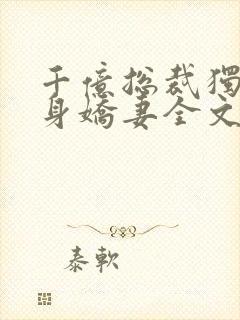 千億总裁獨
身嬌妻全文
泰軟